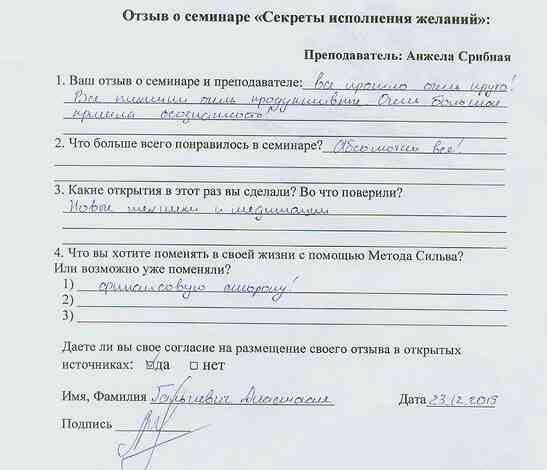 Отзыв о семинаре «Секреты исполнения желаний»:
Преподаватель: Анжела Срибная
1. Ваш отзыв о семинаре и преподавателе: все прошло очень круто!
Все техники очень продуктивные. Очень большая
приняла осознанность!
2. Что больше всего понравилось в семинаре? Абсолютно все!
3. Какие открытия в этот раз вы сделали? Во что поверили?
Новые техники и медитации
4. Что вы хотите поменять в своей жизни с помощью Метода Сильва?
Или возможно уже поменяли?
1) финансовую сторону!
2)
3)
Даете ли вы свое согласие на размещение своего отзыва в открытых
источниках: да нет
Имя, Фамилия Анастасия Дата 23.12.2019
Подпись